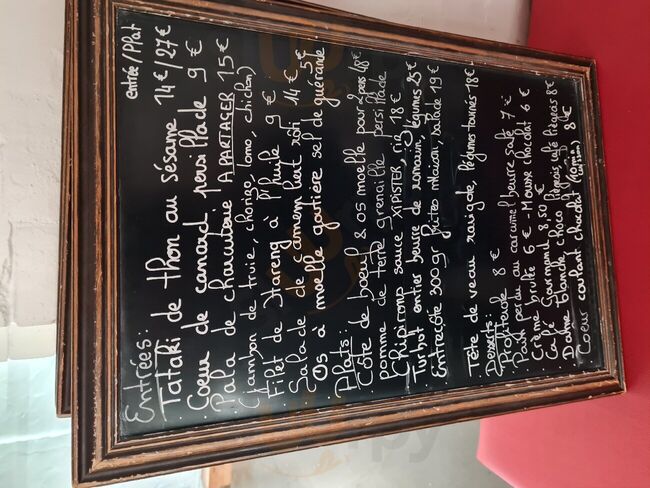 entrée / Plat
Entrées:
Tataki de thon au sésame 14€/27€
Coeur de canard persillade 9€
Pala de charcuterie A PARTAGER 15€
(jambon de truie, chorizo, lomo, chichon)
Filet de Hareng à l'huile 9€
Salade de camembert rôti 14€
Os à moelle gartière sel de guérande 5€
Plats:
Côte de boeuf & os moelle pour 2 pers
pomme de terre grenaille persillade
Chipirons sauce XIPISTER, riz 18€
Turbot entier beurre de romarin, légumes 25€
Entrecôte 300gr frites maison, salade 19€
Tête de veau ravigote, légumes tournés 18€
Desserts:
Profiterole 8€
Pain perdu au caramel beurre salé 7€
Crème brulée 6€ - Mousse chocolat 6€
Café Gourmand 8,50€
Dame blanche, choco liégeois, café liégeois 8€
Coeur coulant chocolat (10 min cuisson) 8€